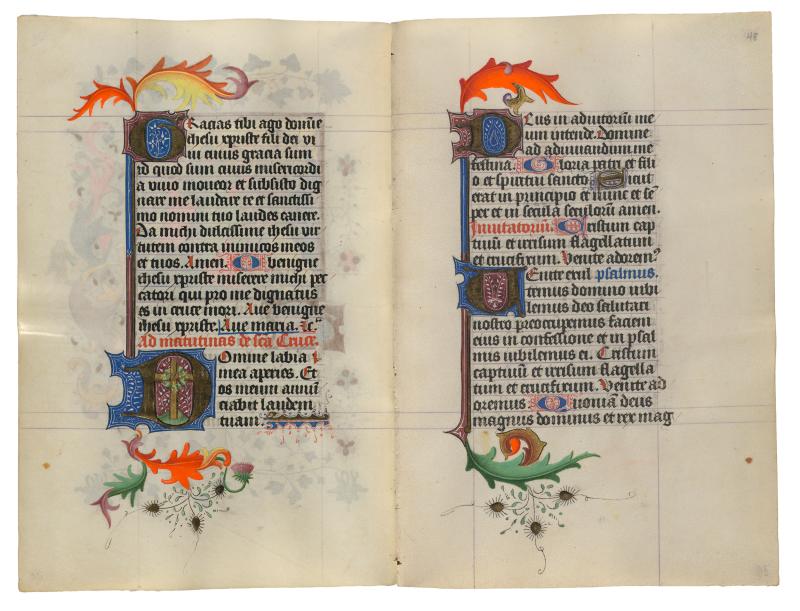 Gracias tibi ago domīe
ihesu xpriste fili dei vi
ui cuius gracia sum
id quod sum cuius misericordi
a viuo moueor et subsisto dig
nare me laudare te et sanctissi
mo nomini tuo laudes canere.
Da michi dulcissime ihesu vir
tutem contra inimicos meos
et tuos. Amen. O benigne
ihesu xpriste miserere michi pec
catori qui pro me dignatus
es in cruce mori. Aue benigne
ihesu xpriste. Aue maria. ⁊c.
Ad matutinas de scā Cruce.
Domine labia
mea aperies. Et
os meum annū
ciabit laudem
tuam.
48
Deus in adiutoriū me
um intende. Domine
ad adiuuandum me
festina. Gloria patri et fili
o et spiritui sancto. Sicut
erat in principio et nunc et sē
per et in secula seculorū amen.
Inuitatoriū. Cristum cap
tiuū et irrisum flagellatum
et crucifixum. Venite adorem⁹
Venite exul psalmus.
temus domino iubi
lemus deo salutari
nostro preoccupemus faciem
eius in confessione et in psal
mis iubilemus ei. Cristum
captiuū et irrisum flagella
tum et crucifixum. Venite ad
oremus. Quoniā deus
magnus dominus et rex mag